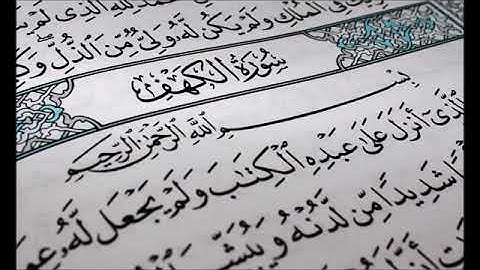 لله الذى لم
فى الملك ولم يكن له ولى من الذل وك
سُورَةُ الكَهْفِ
بِسْمِ اللَّهِ الرَّحْمَٰنِ الرَّحِيمِ
الَّذِىٓ أَنزَلَ عَلَىٰ عَبْدِهِ الْكِتَٰبَ وَلَمْ يَجْعَل لَّهُۥ عِوَ
شَدِيدًا مِّن لَّدُنْهُ وَيُبَشِّ